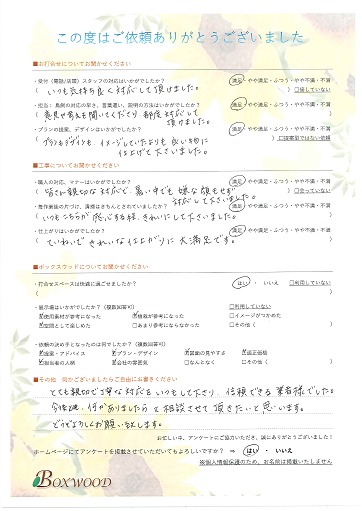 この度はご依頼ありがとうございました
■お打合せについてお聞かせください
・受付(電話/店頭)スタッフの対応はいかがでしたか? 満足・やや満足・ふつう・やや不満・不満
(いつも気持ち良く対応して頂けました。) □接していない
・担当:島側の対応の早さ、言葉遣い、説明の方法はいかがでしたか? 満足・やや満足・ふつう・やや不満・不満
(意見や考えも聞いてくださり都度対応して頂けました。)
・プランの提案、デザインはいかがでしたか? 満足・やや満足・ふつう・やや不満・不満
(プランもデザインも、イメージしていたよりも良い物に仕上げて下さいました。) □提案型ではない依頼
■工事についてお聞かせください
・職人の対応、マナーはいかがでしたか? 満足・やや満足・ふつう・やや不満・不満
(皆さん親切な対応で、暑い中でも嫌な顔もせず対応して下さいました。) □会っていない
・毎作業後の片づけ、清掃はきちんとされていましたか? 満足・やや満足・ふつう・やや不満・不満
(いつもこちらが感心する程、きれいにして下さいました。)
・仕上がりはいかがでしたか? 満足・やや満足・ふつう・やや不満・不満
(ていねいできれいな仕上がりに大満足です。)
■ボックスウッドについてお聞かせください
・打合せスペースは快適に過ごせましたか? はい・いいえ □利用していない
( )
・展示場はいかがでしたか?(複数回答可) □利用していない
☑使用素材が参考になった ☑植栽が参考になった □イメージがつかめた
☑空間として楽しめた □あまり参考にならなかった □その他( )
・依頼の決め手となったのは何でしたか?(複数回答可)
☑提案・アドバイス ☑プラン・デザイン ☑営業の見やすさ ☑適正価格
☑担当者の人柄 ☑会社の雰囲気 □なんとなく □その他( )
■その他 何かございましたらご自由にお書きください
とても親切で丁寧な対応をいつもして下さり、信頼できる業者様でした。
今後共、何かありましたら相談させて頂きたいと思います。
どうぞよろしくお願い致します。
お忙しい中、アンケートにご協力いただき、誠にありがとうございました!
ホームページにてアンケートを掲載させていただいてもよろしいですか? ⇒ はい・いいえ
※個人情報保護のため、お名前は掲載いたしません
BOXWOOD